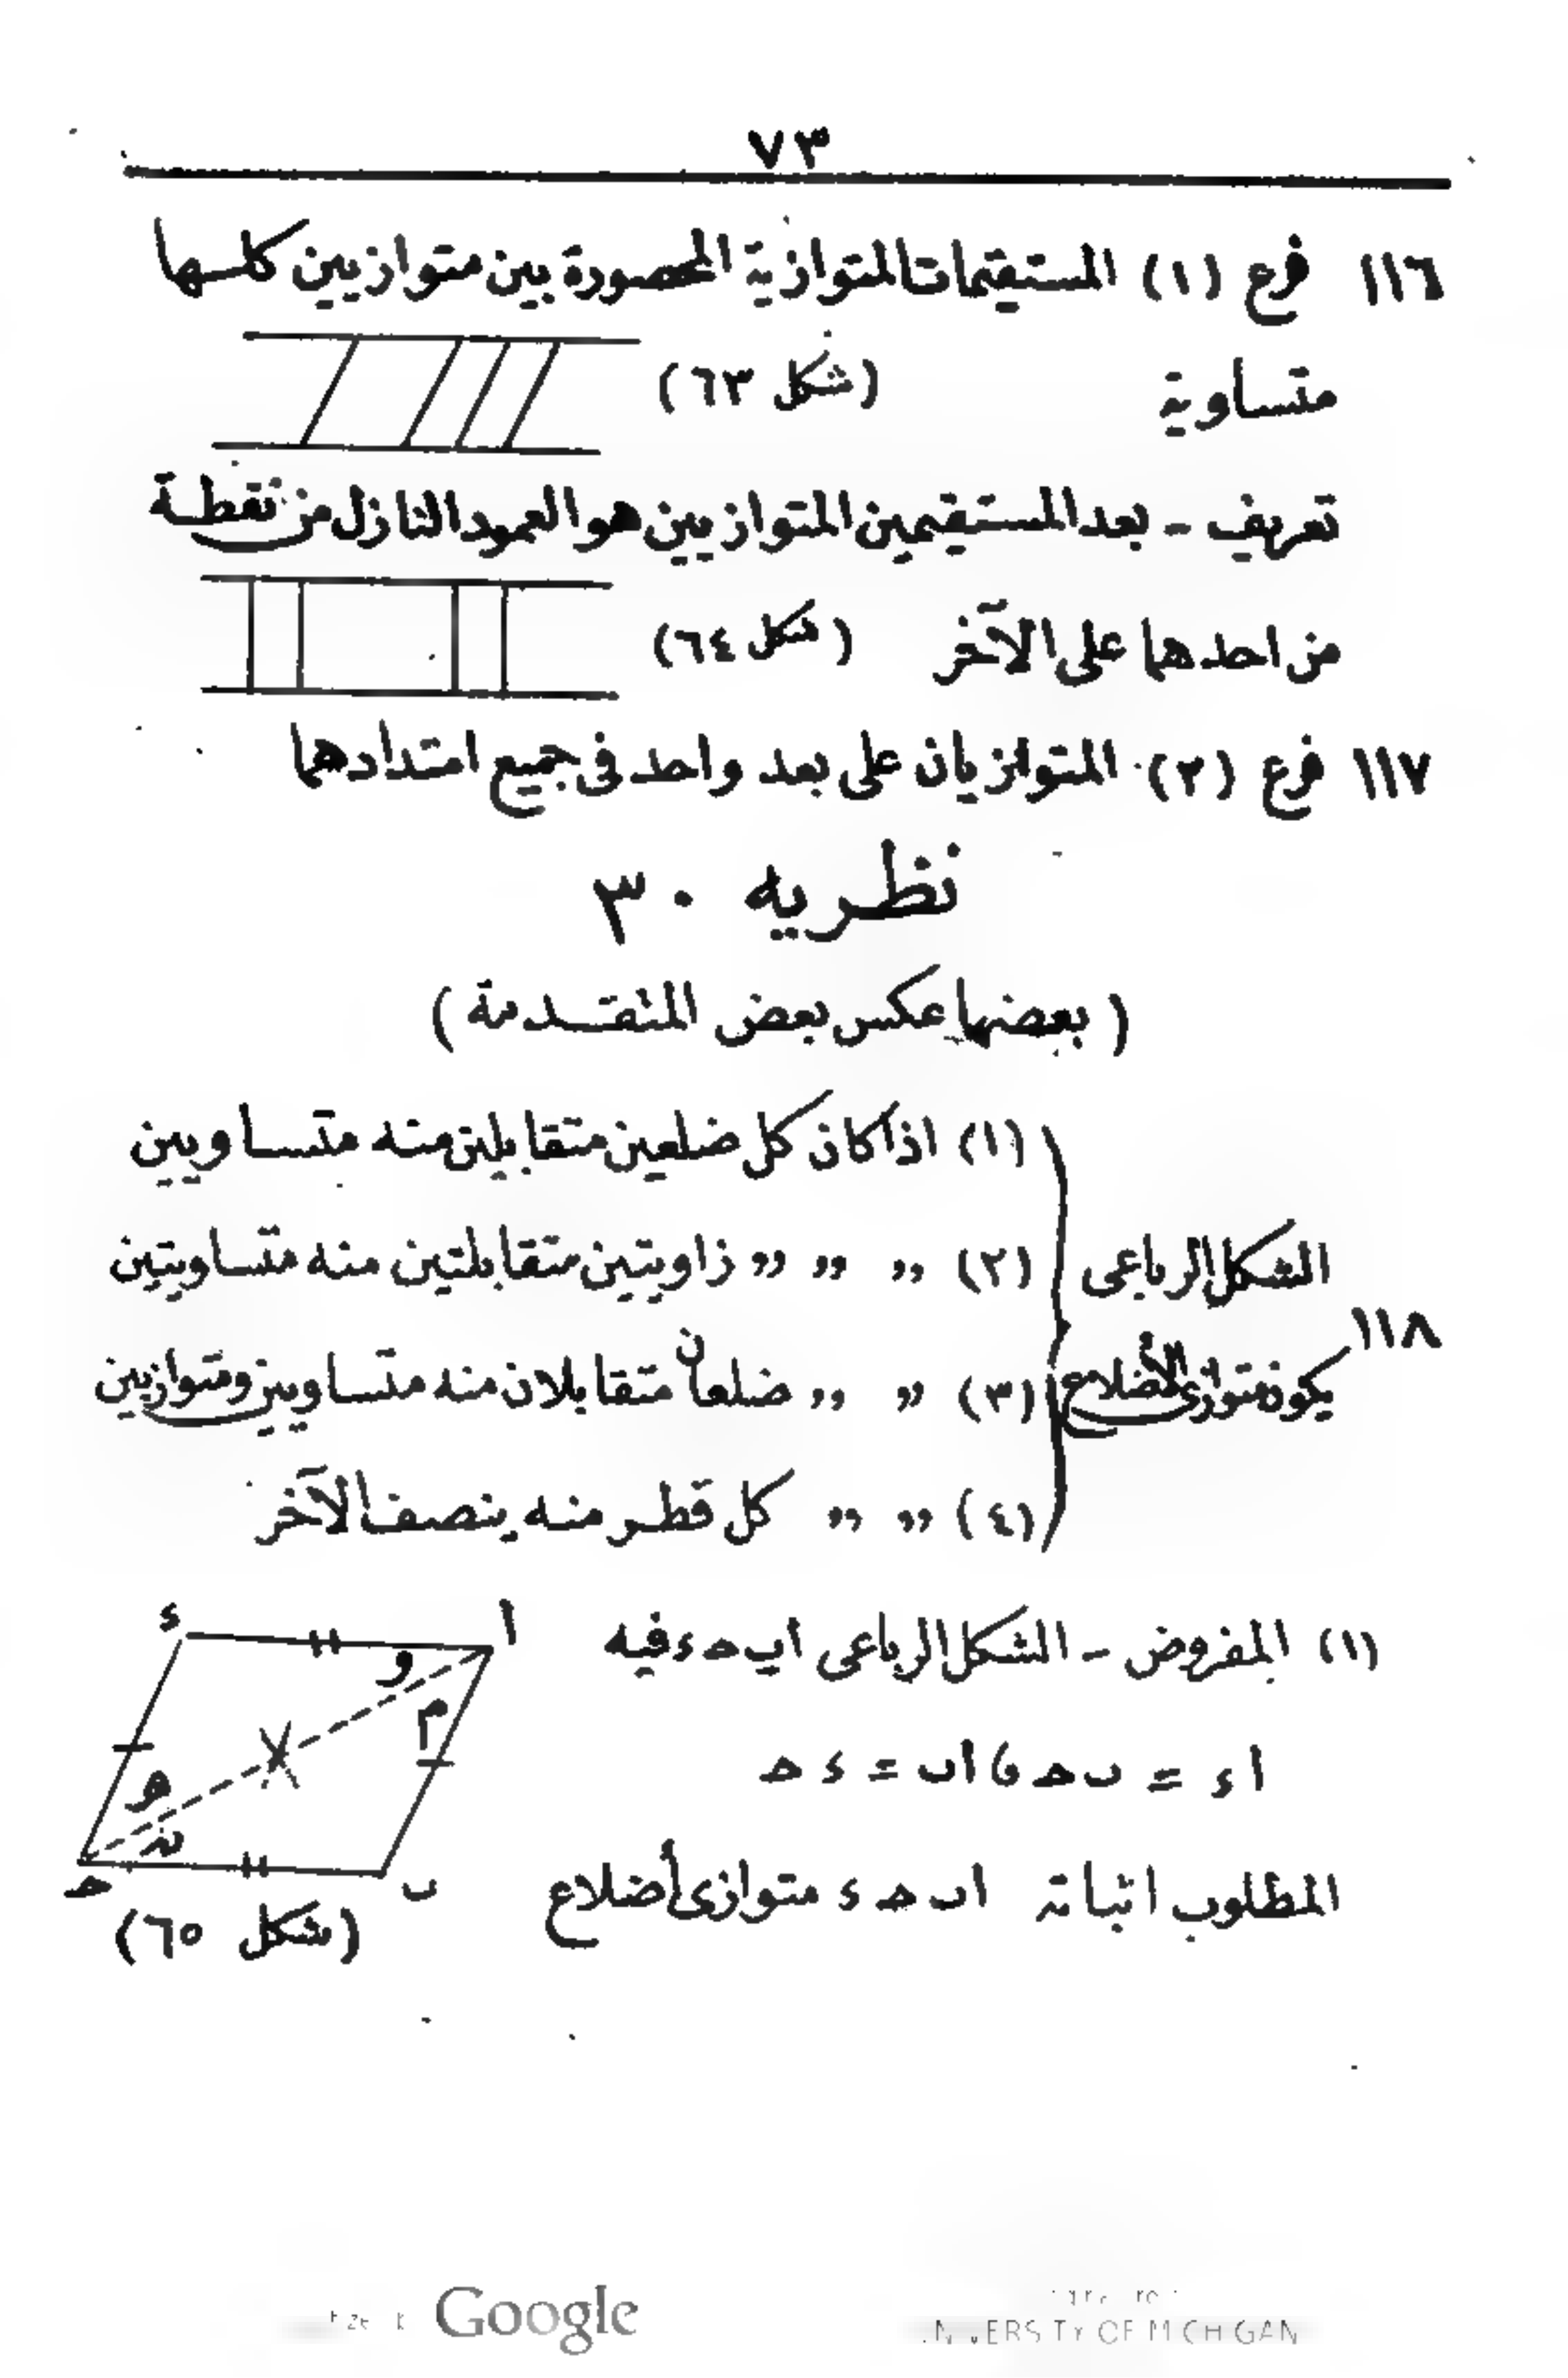 ٧٣
١١٦ فرع (١) المستقيمات المتوازية المحصورة بين متوازيين كلها
متساوية (شكل ٦٣)
تعريف - بعد المستقيمين المتوازيين هو العمود النازل من نقطة
من احدهما على الآخر (شكل ٦٤)
١١٧ فرع (٢) المتوازيان على بعد واحد فى جميع امتدادهما
نظريه ٣٠
(بعضها عكس بعض المتقدمة)
(١) اذا كان كل ضلعين متقابلين منه متساويين
الشكل الرباعى (٢) ,, ,, ,, زاويتين متقابلتين منه متساويتين
١١٨
يكون متوازى الأضلاع (٣) ,, ,, ضلعان متقابلان منه متساويين ومتوازيين
(٤) ,, ,, ,, كل قطر منه ينصف الآخر
(١) المفروض - الشكل الرباعى اب حـ ء فيه
ا ء = ب حـ ، اب = ء حـ
المطلوب اثباته اب حـ ء متوازى أضلاع
ء أ
و
م
هـ
ن
حـ ب
(شكل ٦٥)
Google
UNIVERSITY OF MICHIGAN